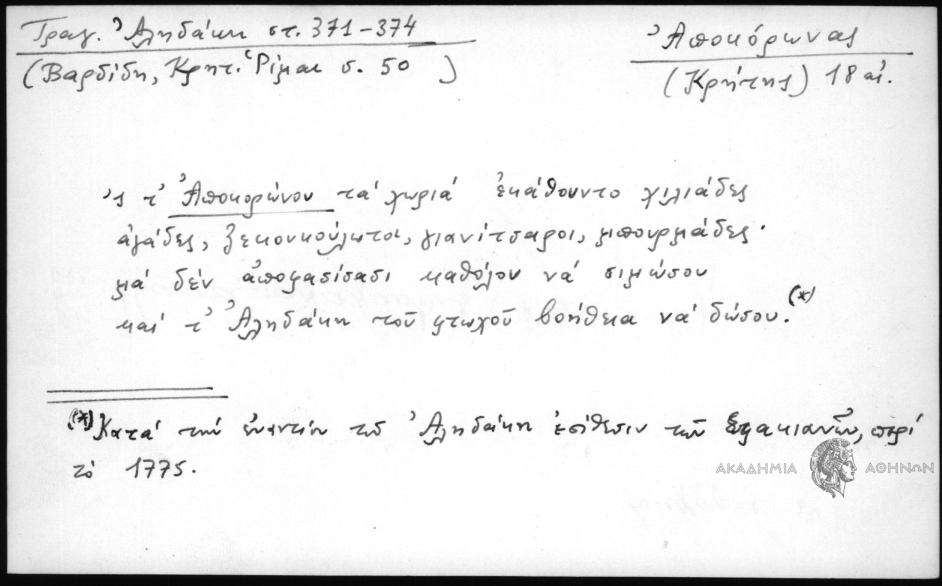 Τραγ. Ἀληδάκη στ. 371-374
(Βαρδίδη, Κρητ. Ῥίμαι σ. 50 )
Ἀποκόρωνας
(Κρήτης) 18 αἰ.
'ς τ' Ἀποκορώνου τὰ χωριά ἐκάθουντο χιλιάδες
ἀγάδες, ξεκουκούλωτοι, γιανίτσαροι, μπουρμάδες·
μά δέν ἀποφασίσασι καθόλου νά σιμώσου
καί τ' Ἀληδάκη τοῦ φτωχοῦ βοήθεια νά δώσου.(*)
(*) Κατά τήν ἐναντίον τοῦ Ἀληδάκη ἐπίθεσιν τῶν Σφακιανῶν, περί
τό 1775.
ΑΚΑΔΗΜΙΑ ΑΘΗΝΩΝ